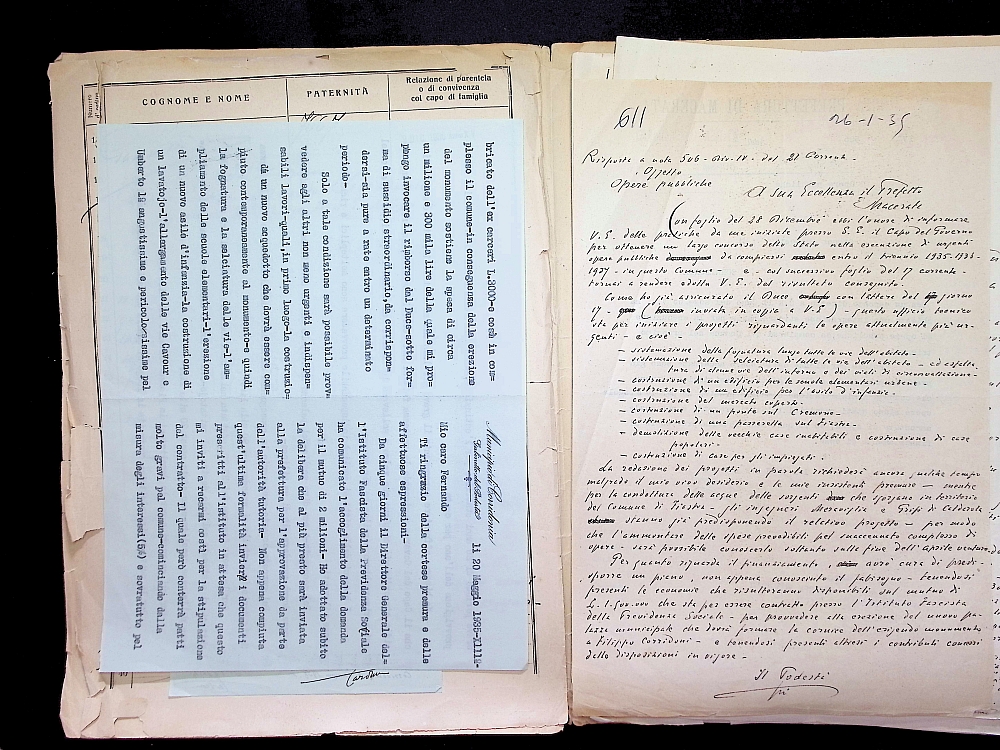 COGNOME E NOME
PATERNITÀ
Relazione di parentela
o di convivenza
col capo di famiglia
Municipio di Corridonia
Gabinetto del Podestà
li 20 Maggio 1935-XIII§-
Mio caro Fernando
Ti ringrazio della cortese premura e delle
affettuose espressioni-
Da cinque giorni il Direttore Generale del=
l'Istituto Fascista della Previdenza Sociale
ha comunicato l'accoglimento della domanda
per il mutuo di 2 milioni- Ho adottato subito
la delibera che al più presto sarà inviata
alla prefettura per l'approvazione da parte
dell'autorità tutoria- Non appena compiuta
quest'ultima formalità invierò i documenti
prescritti all'istituto in attesa che questo
mi inviti a recarmi costì per la stipulazione
del contratto- Il quale però conterrà patti
molto gravi pel comune-cominciando dalla
misura degli interessi(5%) e sovratutto pel
bricato dell'ex carceri L.3000-e così in com=
plesso il comune-in conseguenza della erezione
del monumento sostiene la spesa di circa
un milione e 300 mila lire della quale mi pro=
pongo invocare il rimborso dal Duce-sotto for=
ma di sussidio straordinario,da corrispon=
dersi-sia pure a rate entro un determinato
periodo-
Solo a tale condizione sarà possibile prov=
vedere agli altri non meno urgenti e indispen=
sabili lavori-quali,in primo luogo-la costruzio=
di un nuovo acquedotto che dovrà essere com=
piuto contemporaneamente al monumento-e quindi
la fognatura e la selciatura delle vie-l'am=
pliamento delle scuole elementari-l'erezione
di un nuovo asilo d'infanzia-la costruzione di
un lavatojo-l'allargamento delle vie Cavour e
Umberto I§ angustissime e pericolosissime pel
611
26-1-35
Risposta a nota 506-Div.IV. del 21 Corrente-
Oggetto
Opere pubbliche
A Sua Eccellenza il Prefetto
Macerata
Con foglio del 28 Dicembre ebbi l'onore di informare
V.E. delle pratiche da me iniziate presso S.E. il Capo del Governo
per ottenere un largo concorso dello Stato nella esecuzione di urgenti
opere pubbliche da compiersi entro il triennio 1935-1936-
1937 - in questo Comune - e col successivo foglio del 17 corrente
tornai a rendere edotta V.E. del risultato conseguito.
Come ho già assicurato il Duce con lettera del giorno
17 - (inviata in copia a V.E) questo ufficio tecnico
sta per iniziare i progetti riguardanti le opere attualmente più ur-
genti - e cioè -
- sistemazione della fognatura lungo tutte le vie dell'abitato-
- sistemazione delle selciature di tutte le vie dell'abitato - ed asfalta-
tura di alcune vie dell'interno e dei viali di circonvallazione-
- costruzione di un edificio per le scuole elementari urbane-
- costruzione di un edificio per l'asilo d'infanzia-
- costruzione del mercato coperto-
- costruzione di un ponte sul Cremone-
- costruzione di una passerella sul Fiastra-
- demolizione delle vecchie case inabitabili e costruzione di case
popolari-
- costruzione di case per gli impiegati-
La redazione dei progetti in parola richiederà ancora qualche tempo
malgrado il mio vivo desiderio e le mie insistenti premure - mentre
per la conduttura delle acque delle sorgenti che sgorgano in territorio
del Comune di Fiastra - gli ingegneri e di Caldarola
stanno già predisponendo il relativo progetto - per modo
che l'ammontare delle spese prevedibili pel succennato complesso di
opere - sarà possibile conoscerlo soltanto sulla fine dell'aprile venturo.
Per quanto riguarda il finanziamento avrò cura di predi-
sporre un piano non appena conosciuto il fabisogno - tenendosi
presenti le economie che risulteranno disponibili sul mutuo di
L. che sta per essere contratto presso l'Istituto Fascista
della Previdenza Sociale - per provvedere alla erezione del nuovo pa-
lazzo municipale che dovrà formare la cornice dell'erigendo monumento
a Filippo Corridoni - e tenendosi presenti altresì i contributi concessi
dalle disposizioni in vigore-
Il Podestà